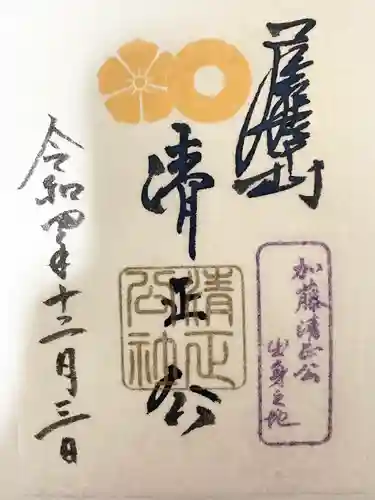 清正公
清正
公社
加藤清正公
出身之地
令和四年十二月三日